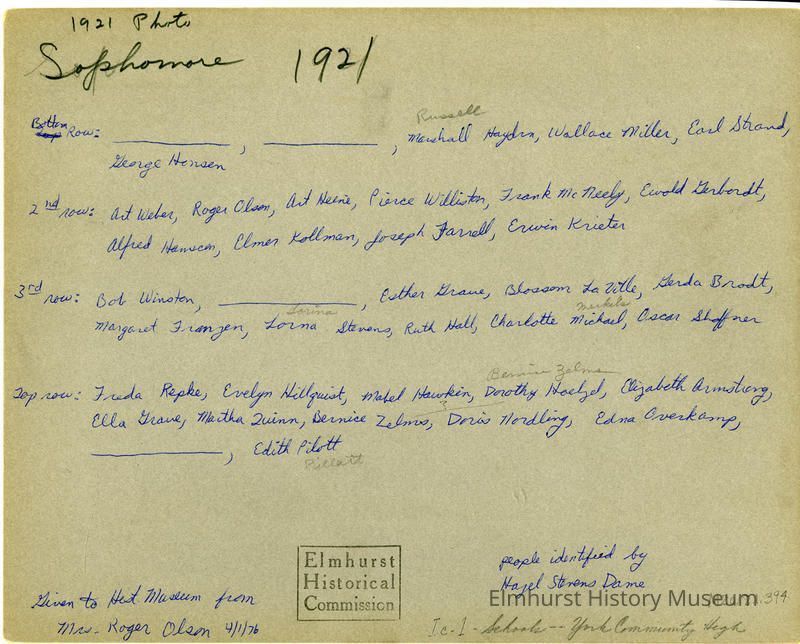 1921 Photo
Sophomore 1921
Russell
Bottom Row: __________, __________, Marshall Haydrn, Wallace Miller, Earl Strand,
George Hansen
2nd row: Art Weber, Roger Olson, Art Heine, Pierce Williston, Frank McNeely, Ewold Gerbordt,
Alfred Hanscen, Elmer Kollman, Joseph Farrell, Erwin Krieter
3rd row: Bob Winston, __________, Esther Graue, Blossom LaVille, Gerda Brodt,
Lorina Merkels
Margaret Franzen, Lorna Stevens, Ruth Hall, Charlotte Michael, Oscar Shoffner
Bernice Zelms
Top row: Freda Repke, Evelyn Hillquist, Mabel Hawkin, Dorothy Hoelzel, Elizabeth Armstrong,
Ella Graue, Martha Quinn, Bernice Zelms, Doris Nordling, Edna Overkamp,
__________, Edith Pilott
Pillatt
Elmhurst
Historical
Commission
people identified by
Hazel Stevens Dame
Given to Hist. Museum from
Mrs. Roger Olson 4/1/76
Elmhurst History Museum
394
Ic-1 - Schools -- York Community High